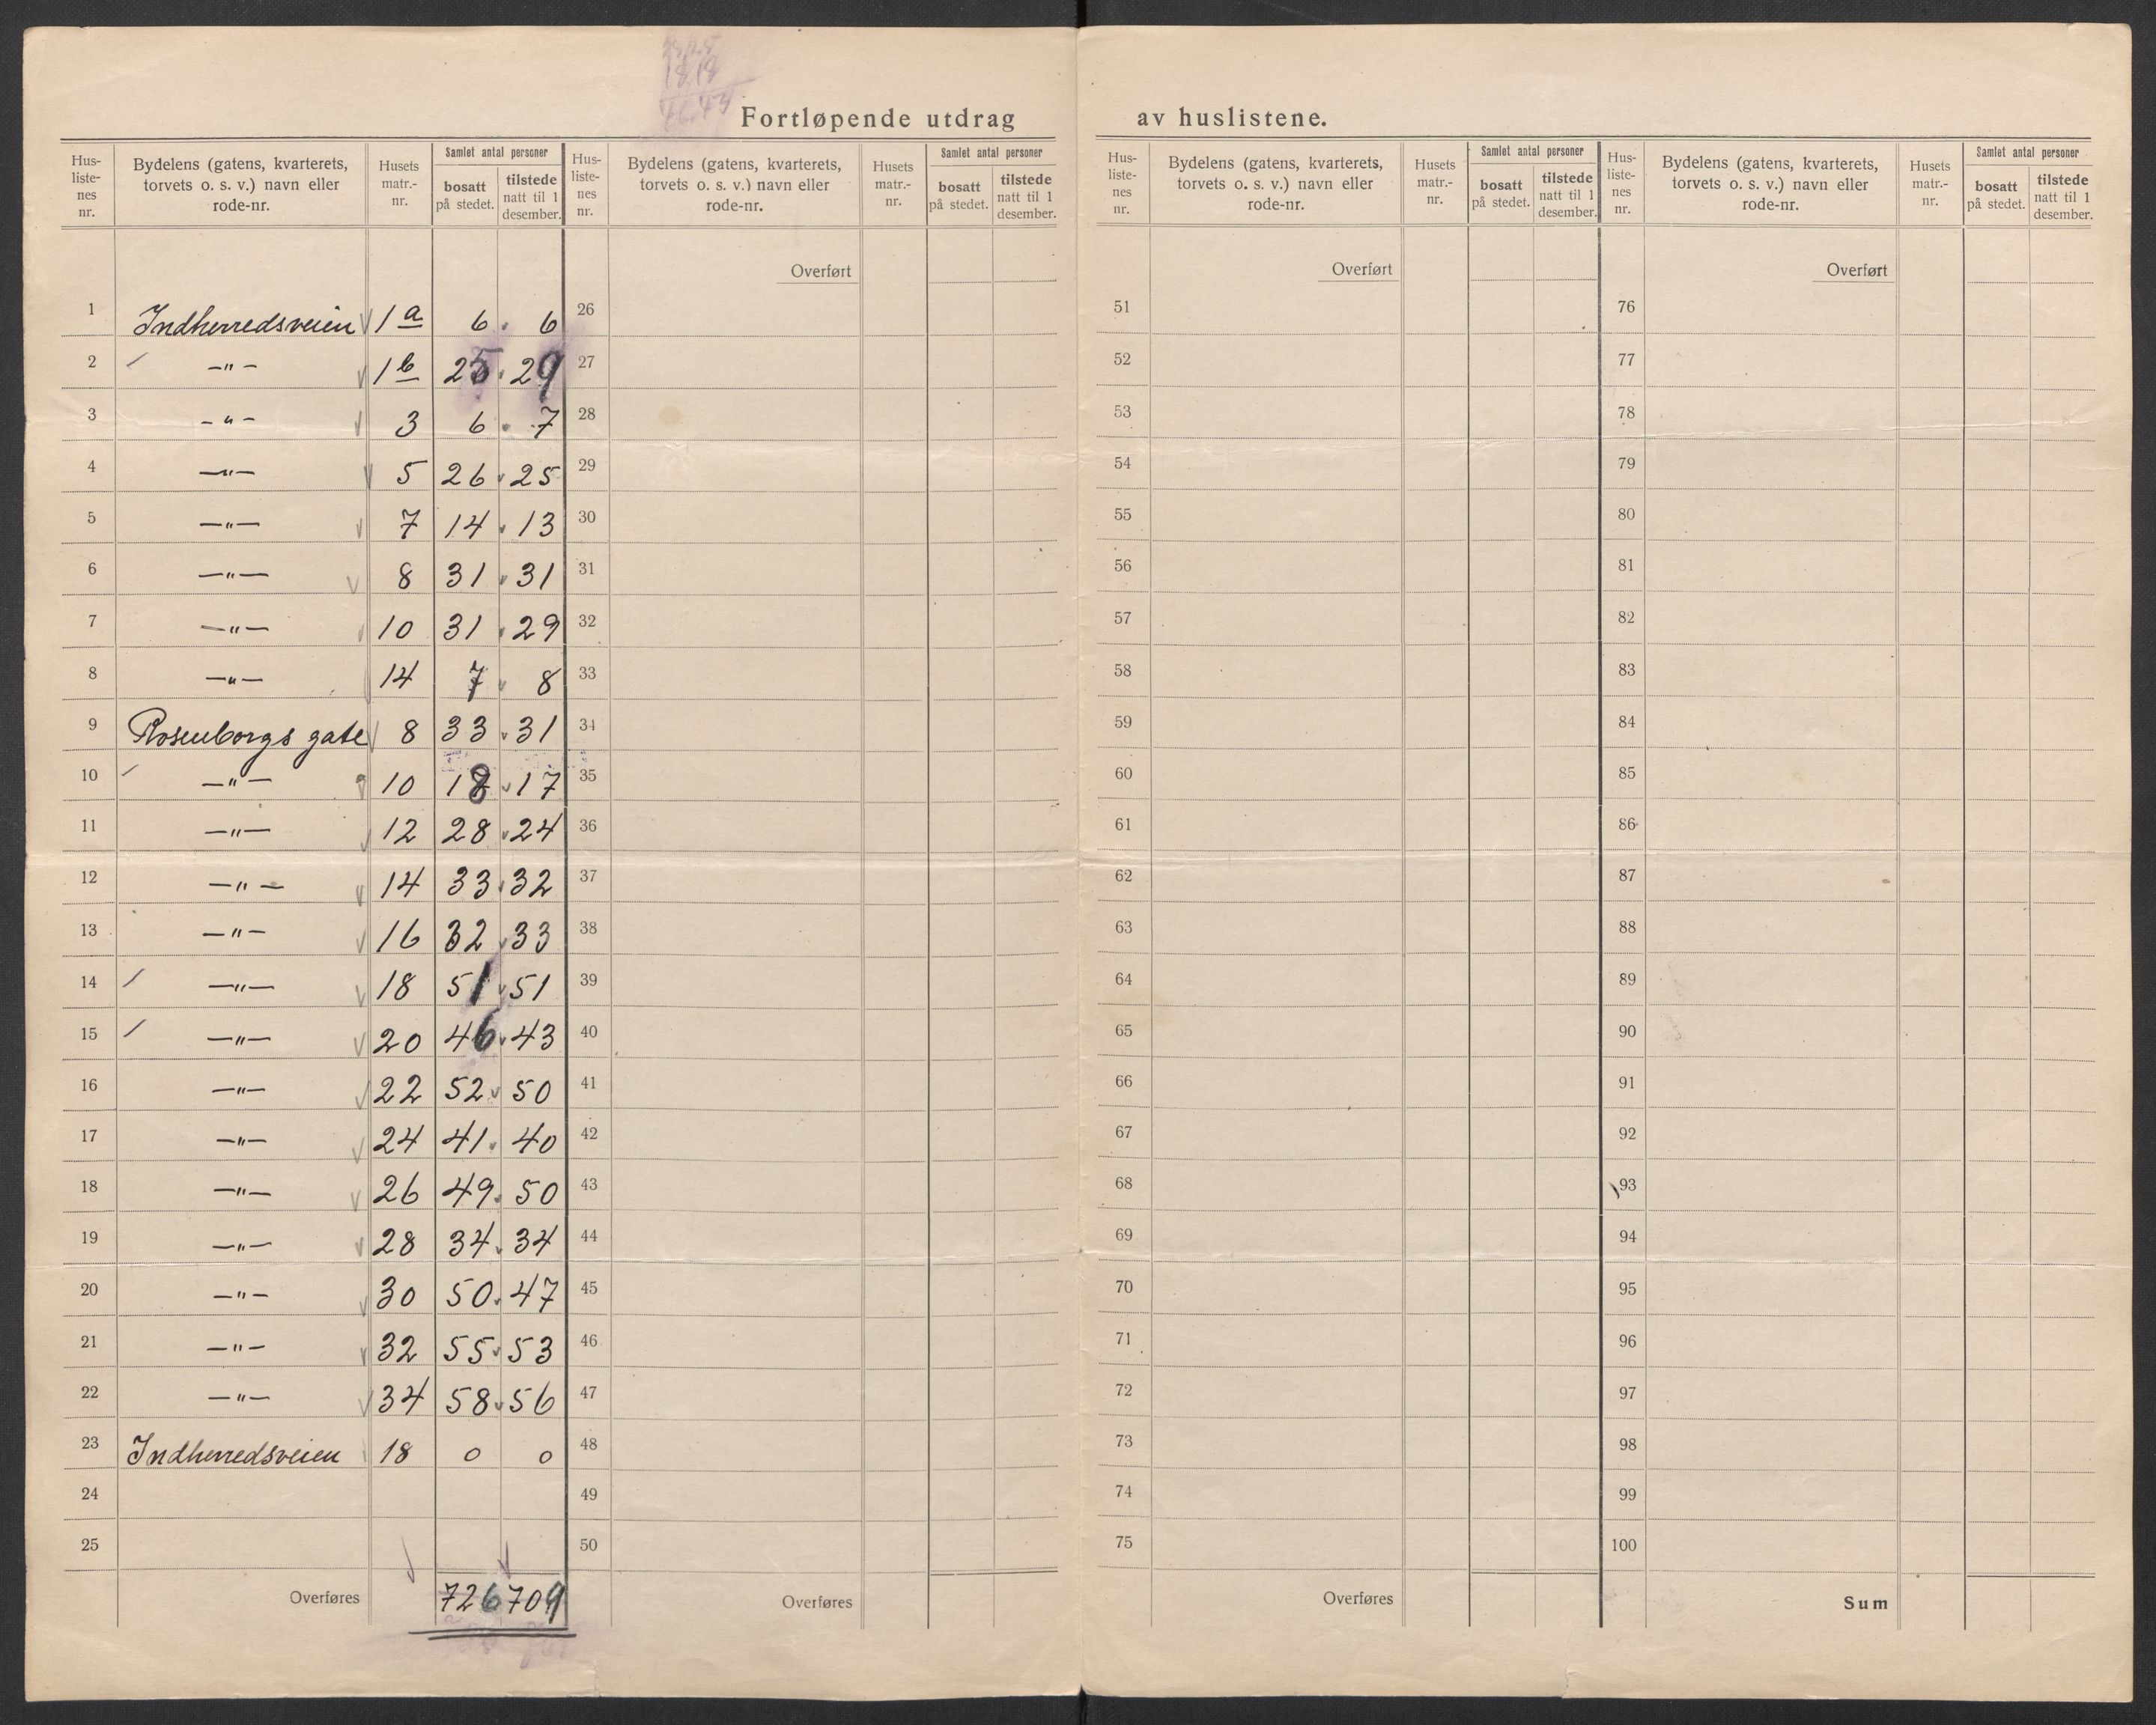 18.18
Fortløpende utdrag av huslistene.
Hus-liste-nes nr. | Bydelens (gatens, kvarterets, torvets o. s. v.) navn eller rode-nr. | Husets matr.-nr. | Samlet antal personer | bosatt på stedet. | tilstede natt til 1 desember.
Hus-liste-nes nr. | Bydelens (gatens, kvarterets, torvets o. s. v.) navn eller rode-nr. | Husets matr.-nr. | Samlet antal personer | bosatt på stedet. | tilstede natt til 1 desember.
Hus-liste-nes nr. | Bydelens (gatens, kvarterets, torvets o. s. v.) navn eller rode-nr. | Husets matr.-nr. | Samlet antal personer | bosatt på stedet. | tilstede natt til 1 desember.
Hus-liste-nes nr. | Bydelens (gatens, kvarterets, torvets o. s. v.) navn eller rode-nr. | Husets matr.-nr. | Samlet antal personer | bosatt på stedet. | tilstede natt til 1 desember.
Overført Overført Overført
1 Indherredsveien 1a 6 6 26 51 76
2 —"— 1b 25 29 27 52 77
3 —"— 3 6 7 28 53 78
4 —"— 5 26 25 29 54 79
5 —"— 7 14 13 30 55 80
6 —"— 8 31 31 31 56 81
7 —"— 10 31 29 32 57 82
8 —"— 14 7 8 33 58 83
9 Rosenborgs gate 8 33 31 34 59 84
10 —"— 10 18 17 35 60 85
11 —"— 12 28 24 36 61 86
12 —"— 14 33 32 37 62 87
13 —"— 16 32 33 38 63 88
14 —"— 18 51 51 39 64 89
15 —"— 20 46 43 40 65 90
16 —"— 22 52 50 41 66 91
17 —"— 24 41 40 42 67 92
18 —"— 26 49 50 43 68 93
19 —"— 28 34 34 44 69 94
20 —"— 30 50 47 45 70 95
21 —"— 32 55 53 46 71 96
22 —"— 34 58 56 47 72 97
23 Indherredsveien 18 0 0 48 73 98
24 49 74 99
25 50 75 100
Overføres 726 709 Overføres Overføres Sum